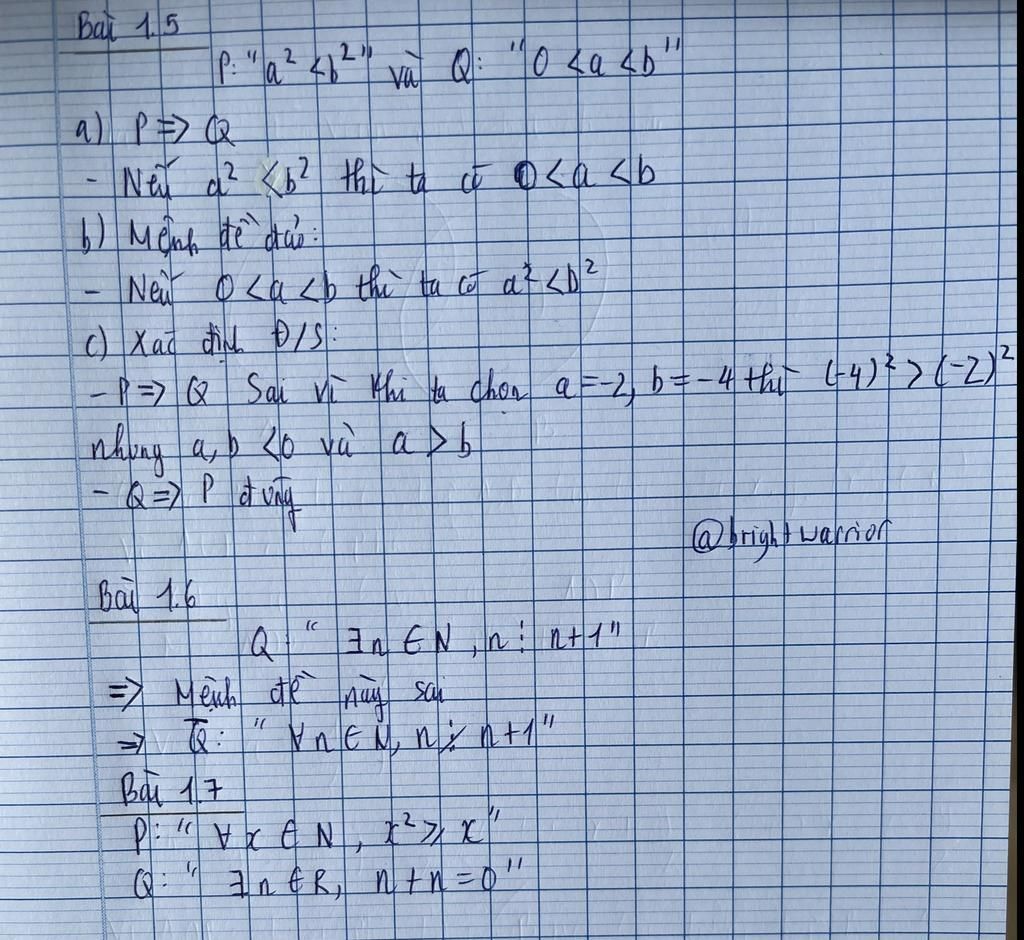 Bài 1.5
P: "a² < b²" và Q: "0 < a < b"
a) P => Q
- Nếu a² < b² thì ta có 0 < a < b
b) Mệnh đề đảo:
- Nếu 0 < a < b thì ta có a² < b²
c) Xác định Đ/S:
- P => Q Sai vì khi ta chọn a = -2, b = -4 thì (-4)² > (-2)²
nhưng a, b < 0 và a > b
- Q => P đúng
@brightwarrior
Bài 1.6
Q: "∃n ∈ N, n ⋮ n+1"
=> Mệnh đề này sai
=> Q̅: "∀n ∈ N, n ⋮̸ n+1"
Bài 1.7
P: "∀x ∈ N, x² ⩾ x"
Q: "∃n ∈ R, n + n = 0"